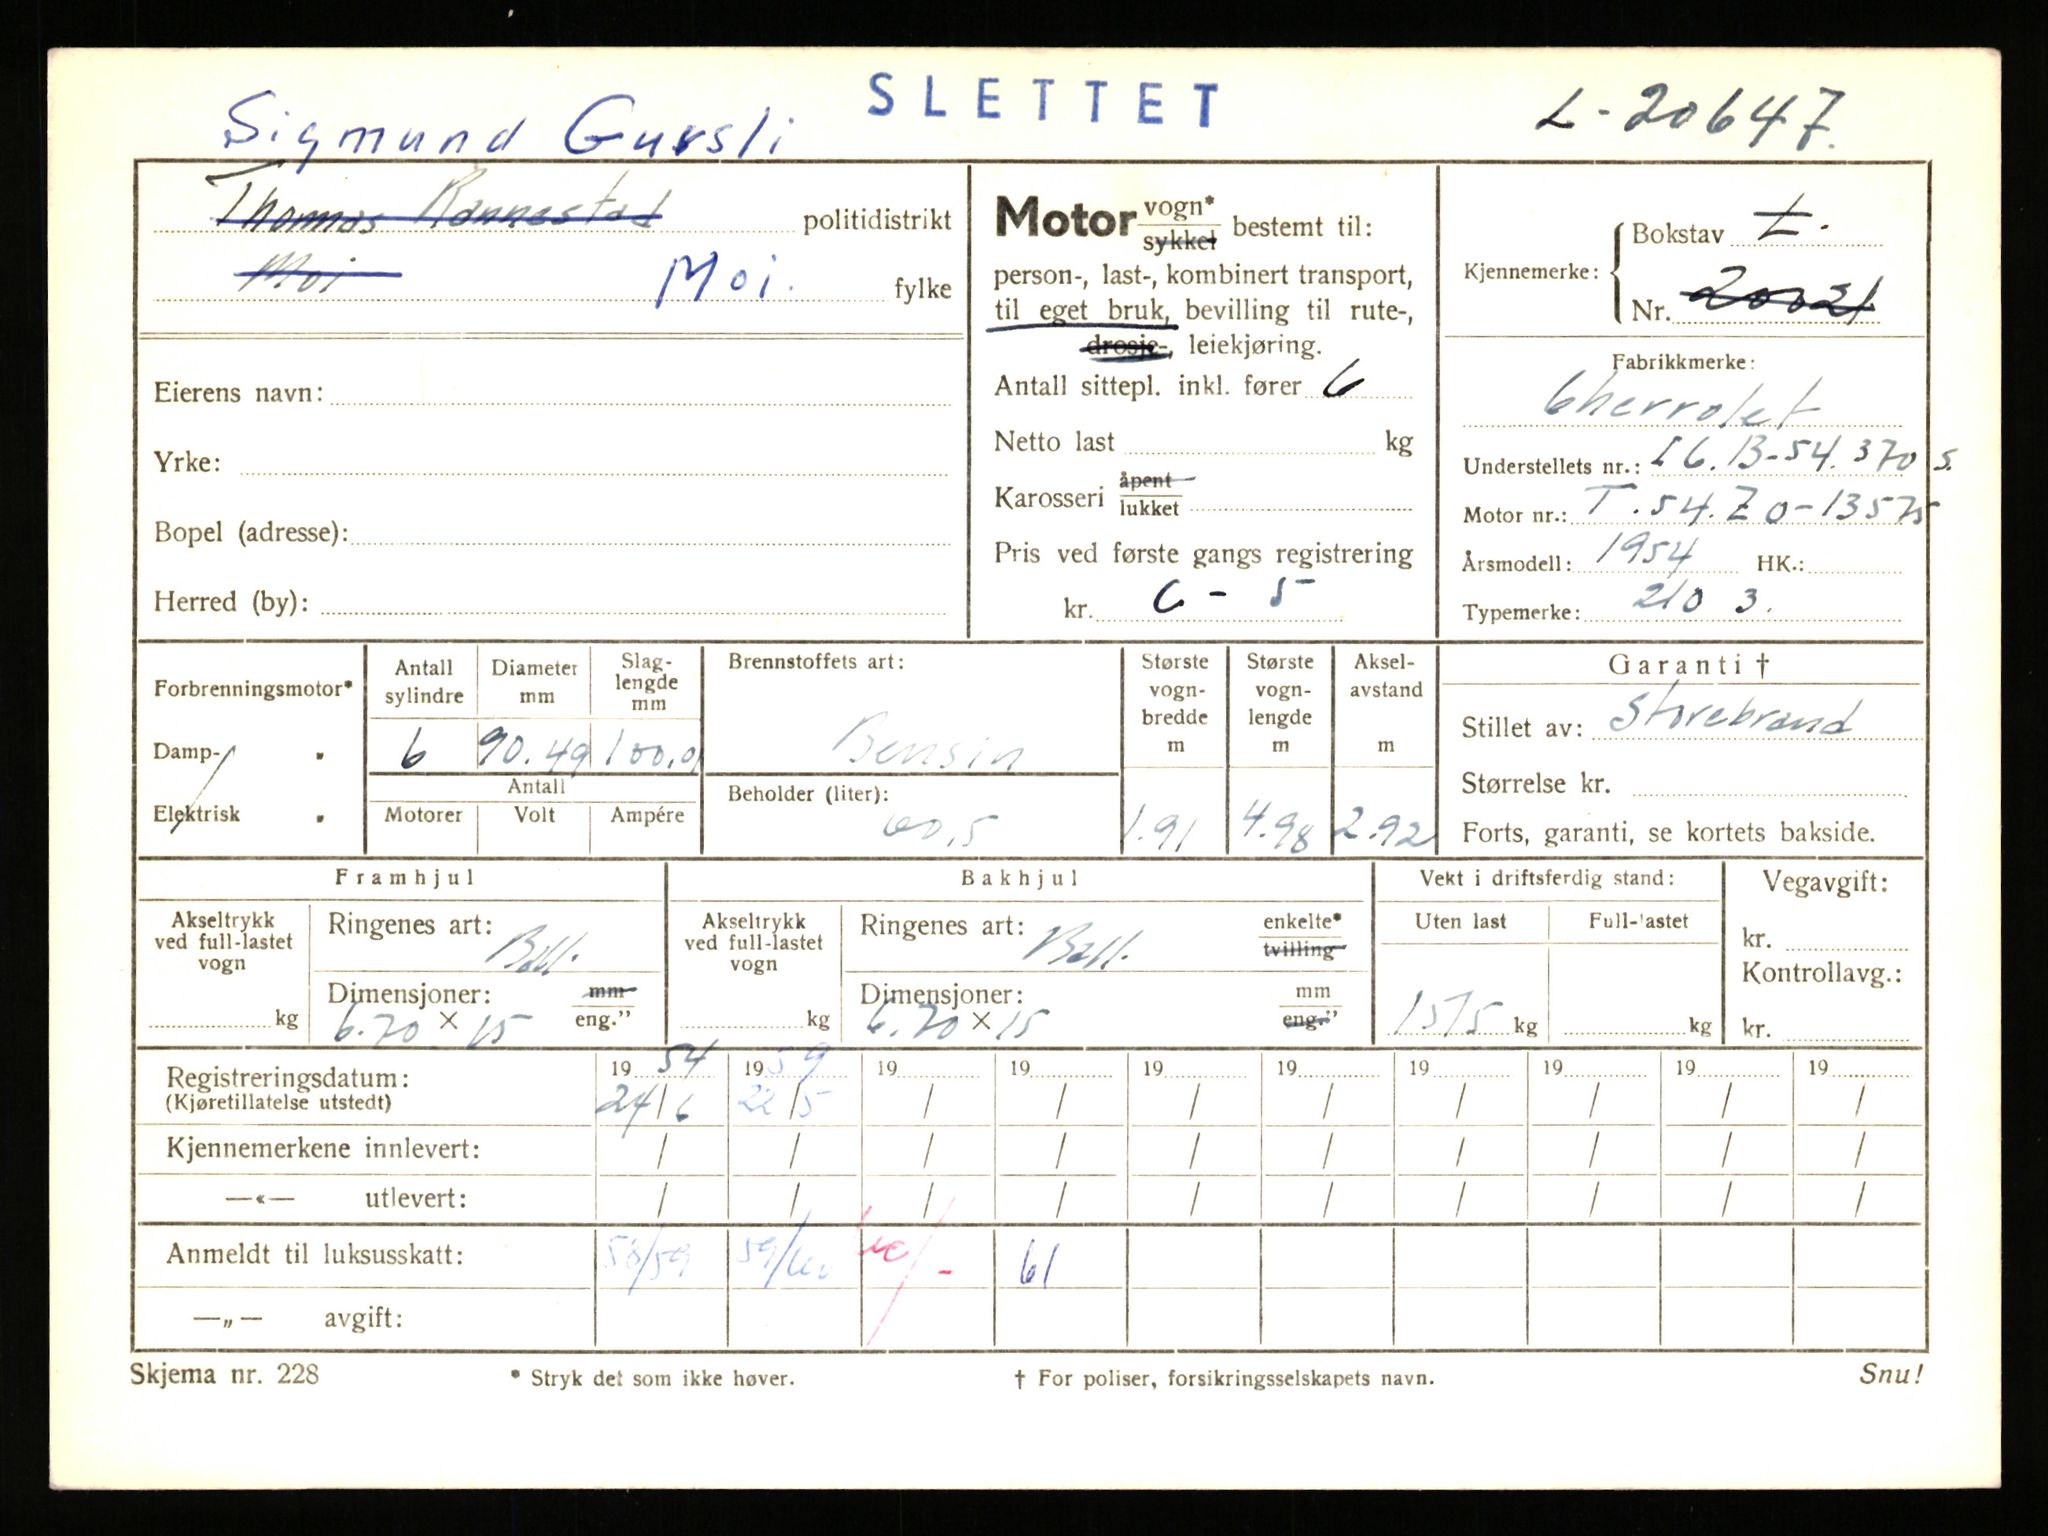 SLETTET
Sigmund Gursli
L-20647.
Thomas Rannestad politidistrikt
Moi Moi. fylke
Eierens navn:
Yrke:
Bopel (adresse):
Herred (by):
Motor vogn* sykkel bestemt til:
person-, last-, kombinert transport,
til eget bruk, bevilling til rute-,
drosje-, leiekjøring.
Antall sittepl. inkl. fører 6
Netto last kg
Karosseri åpent lukket
Pris ved første gangs registrering
kr. 6 - 5
Kjennemerke: Bokstav L.
Nr. 20021
Fabrikkmerke:
Chevrolet
Understellets nr.: I6.B-54.370 S.
Motor nr.: T.54.Z0-13575
Årsmodell: 1954 HK.:
Typemerke: 210 3.
Forbrenningsmotor*
Damp- "
Elektrisk "
Antall sylindre 6
Diameter mm 90.49
Slag-lengde mm 100.01
Antall
Motorer Volt Ampére
Brennstoffets art:
Bensin
Beholder (liter):
60,5
Største vogn-bredde m 1.91
Største vogn-lengde m 4.98
Aksel-avstand m 2.92
Garanti †
Stillet av: Storebrand
Størrelse kr.
Forts, garanti, se kortets bakside.
Framhjul
Akseltrykk ved full-lastet vogn kg
Ringenes art: Ball.
Dimensjoner: mm eng."
6.70 × 15
Bakhjul
Akseltrykk ved full-lastet vogn kg
Ringenes art: Ball. enkelte* tvilling
Dimensjoner: mm eng."
6.70 × 15
Vekt i driftsferdig stand:
Uten last Full-lastet
1515 kg kg
Vegavgift:
kr.
Kontrollavg.:
kr.
Registreringsdatum: 19 54 19 59 19 19 19 19 19 19 19 19
(Kjøretillatelse utstedt) 24/6 22/5 / / / / / / / /
Kjennemerkene innlevert: / / / / / / / / / /
—«— utlevert: / / / / / / / / / /
Anmeldt til luksusskatt: 58/59 59/60 60/- 61
—„— avgift:
Skjema nr. 228 * Stryk det som ikke høver. † For poliser, forsikringsselskapets navn. Snu!